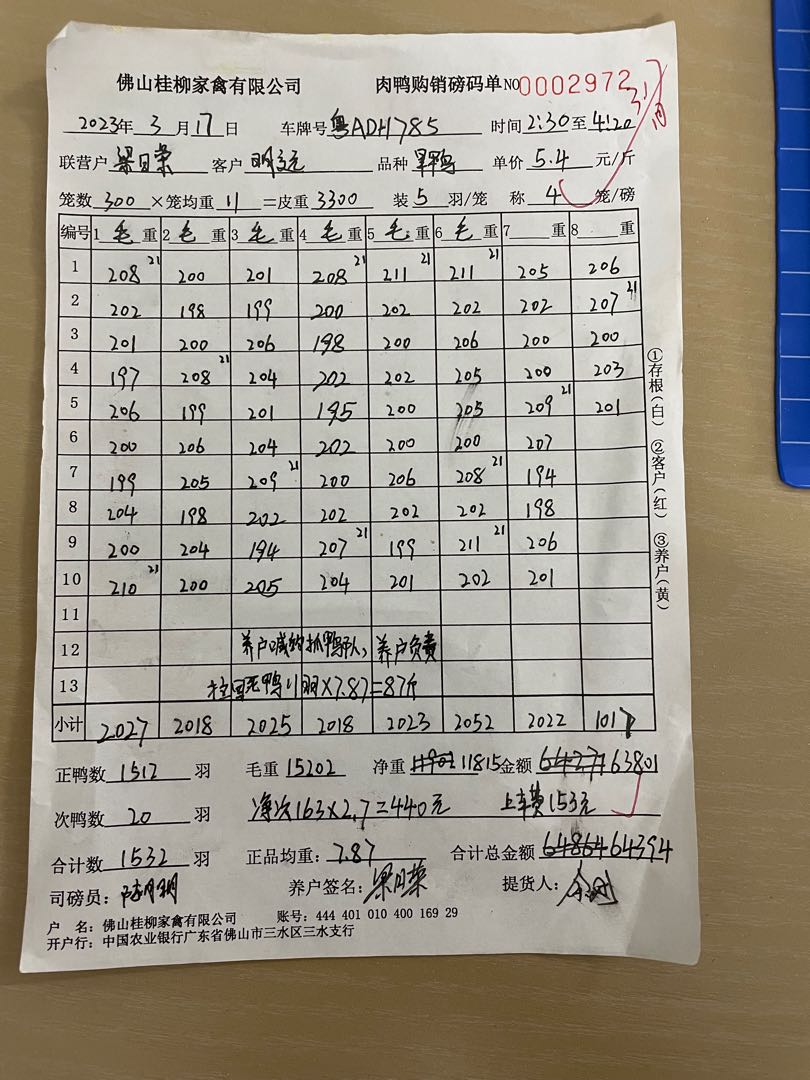 佛山桂柳家禽有限公司 肉鸭购销磅码单 NO 0002972
2023年 3月17日 车牌号 粤ADH785 时间 2:30至4:20
联营户 梁日荣 客户 品种 单价 5.4 元/斤
笼数 300 ×笼均重 11 =皮重 3300 装 5 羽/笼 称 4 笼/磅
编号 1 毛 重 2 毛 重 3 毛 重 4 毛 重 5 毛 重 6 毛 重 7 重 8 重
1 208 21 200 201 208 21 211 21 211 21 205 206
2 202 198 199 200 202 202 202 207 21
3 201 200 206 198 200 206 200 200
4 197 208 21 204 202 202 205 200 203
5 206 199 201 195 200 205 209 21 201
6 200 206 204 202 200 200 207
7 199 205 209 21 200 206 208 21 194
8 204 198 202 202 202 202 198
9 200 204 194 207 21 199 211 21 206
10 210 21 200 205 204 201 202 201
11
12 养户喊的抓鸭队,养户负责
13 拉回死鸭11羽×7.87=87斤
小计 2027 2018 2025 2018 2023 2052 2022 1017
正鸭数 1512 羽 毛重 15202 净重 11815 金额 63801
次鸭数 20 羽 净次163×2.7=440元 上车费153元
合计数 1532 羽 正品均重: 7.87 合计总金额 64394
司磅员: 养户签名: 梁日荣 提货人:
户 名: 佛山桂柳家禽有限公司 账号: 444 401 010 400 169 29
开户行: 中国农业银行广东省佛山市三水区三水支行
①存根(白) ②客户(红) ③养户(黄)